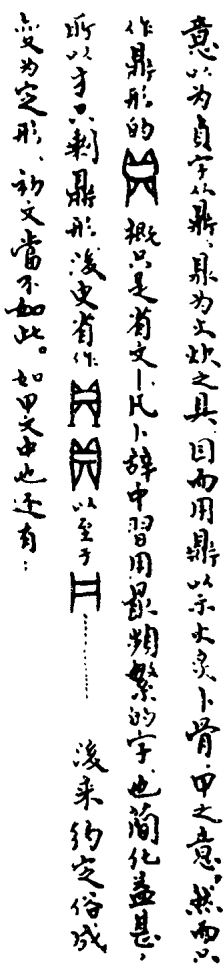 意以为貞字从鼎、鼎为火炊之具、因而用鼎以示火灸卜骨、甲之意。然而只
作鼎形的 概只是省文—凡卜辞中習用最頻繁的字也簡化益甚,
所以才只剩鼎形後更省作 以至于 ……… 後来約定俗成
變为定形、初文當不如此。如甲文中也还有: